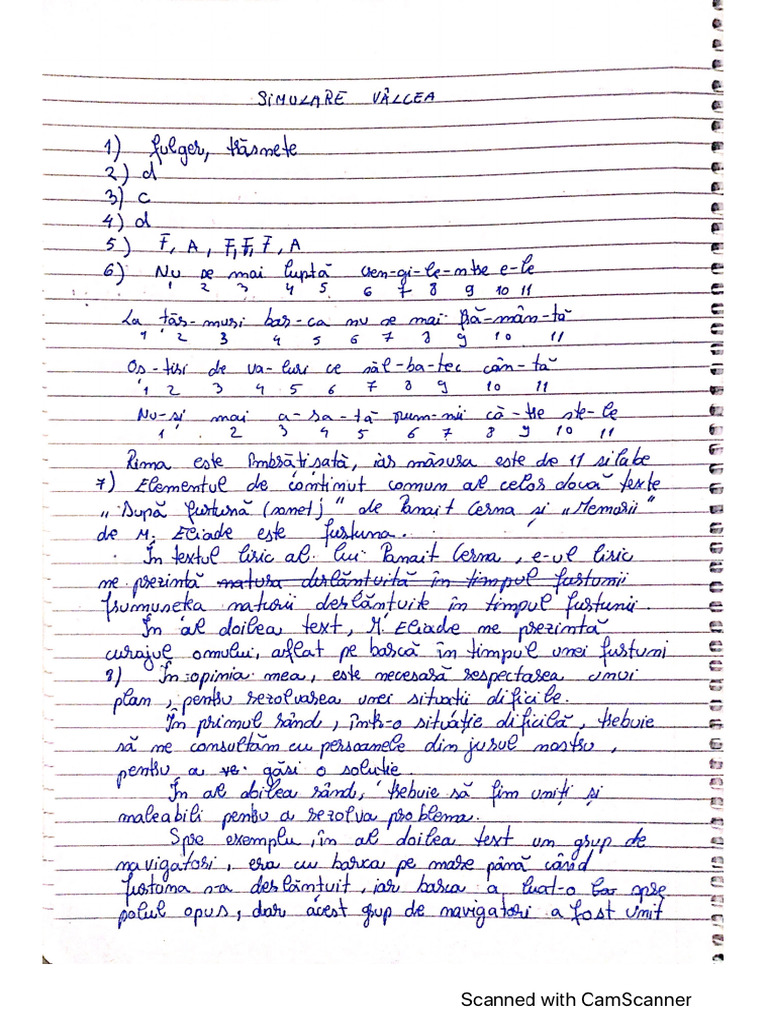 SIMULARE VÂLCEA
1) fulger, trăsnete
2) d
3) c
4) d
5) F, A, F, F, F, A
6) Nu se mai luptă cren-gi-le-ntre e-le
1 2 3 4 5 6 7 8 9 10 11
La țăr-muri bar-ca nu se mai fră-mân-tă
1 2 3 4 5 6 7 8 9 10 11
Os-tiri de va-luri ce săl-ba-tec cân-tă
1 2 3 4 5 6 7 8 9 10 11
Nu-și mai a-ra-tă pum-nii că-tre ste-le
1 2 3 4 5 6 7 8 9 10 11
Rima este îmbrățișată, iar măsura este de 11 silabe
7) Elementul de conținut comun al celor două texte
„După furtună (sonet)" de Panait Cerna și „Memorii"
de M. Eliade este furtuna.
În textul liric al lui Panait Cerna, e-ul liric
ne prezintă natura dislănțuită în timpul furtunii
frumusețea naturii deslănțuite în timpul furtunii.
În al doilea text, M. Eliade ne prezintă
curajul omului, aflat pe barcă în timpul unei furtuni
8) În opinia mea, este necesară respectarea unui
plan, pentru rezolvarea unei situații dificile.
În primul rând, într-o situație dificilă, trebuie
să ne consultăm cu persoanele din jurul nostru,
pentru a găsi o soluție.
În al doilea rând, trebuie să fim uniți și
maleabili pentru a rezolva problema.
Spre exemplu, în al doilea text un grup de
navigatori, era cu barca pe mare până când
furtuna s-a deslănțuit, iar barca a luat-o spre
polul opus, dar acest grup de navigatori a fost unit
Scanned with CamScanner